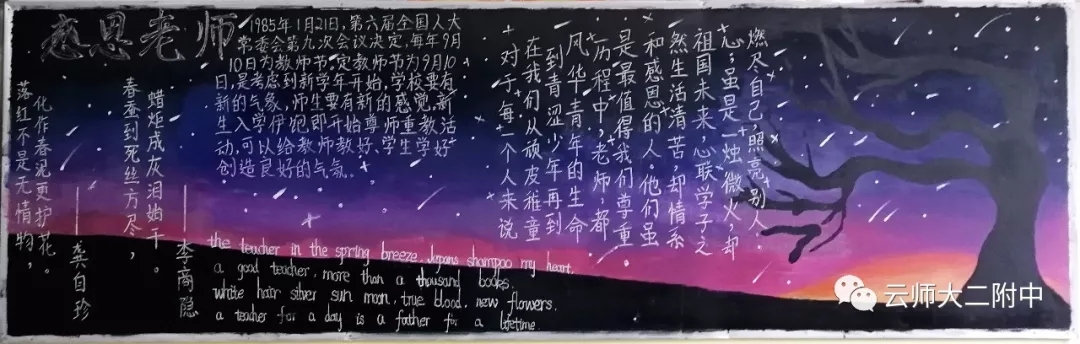 感恩老师
1985年1月21日,第六届全国人大
常委会第九次会议决定,每年9月
10日为教师节,定教师节为9月10
日,是考虑到新学年开始,学校要有
新的气象,师生要有新的感觉,新
生入学伊始即开始尊师重教活
动,可以给教师教好、学生学好
创造良好的气氛。
落红不是无情物，
化作春泥更护花。
——龚自珍
春蚕到死丝方尽，
蜡炬成灰泪始干。
——李商隐
对于每一个人来说
在我们从顽皮稚童
到青涩少年再到
风华青年的生命
历程中,老师,都
是最值得我们尊重
和感恩的人他们虽
然生活清苦却情系
祖国未来,心联学子之
心;虽是一烛微火,却
燃尽自己,照亮别人.
the teacher in the spring breeze, Japans shampoo my heart,
a good teacher, more than a thousand books,
white hair silver sun moon, true blood, new flowers,
a teacher for a day is a father for a lifetime
云师大二附中